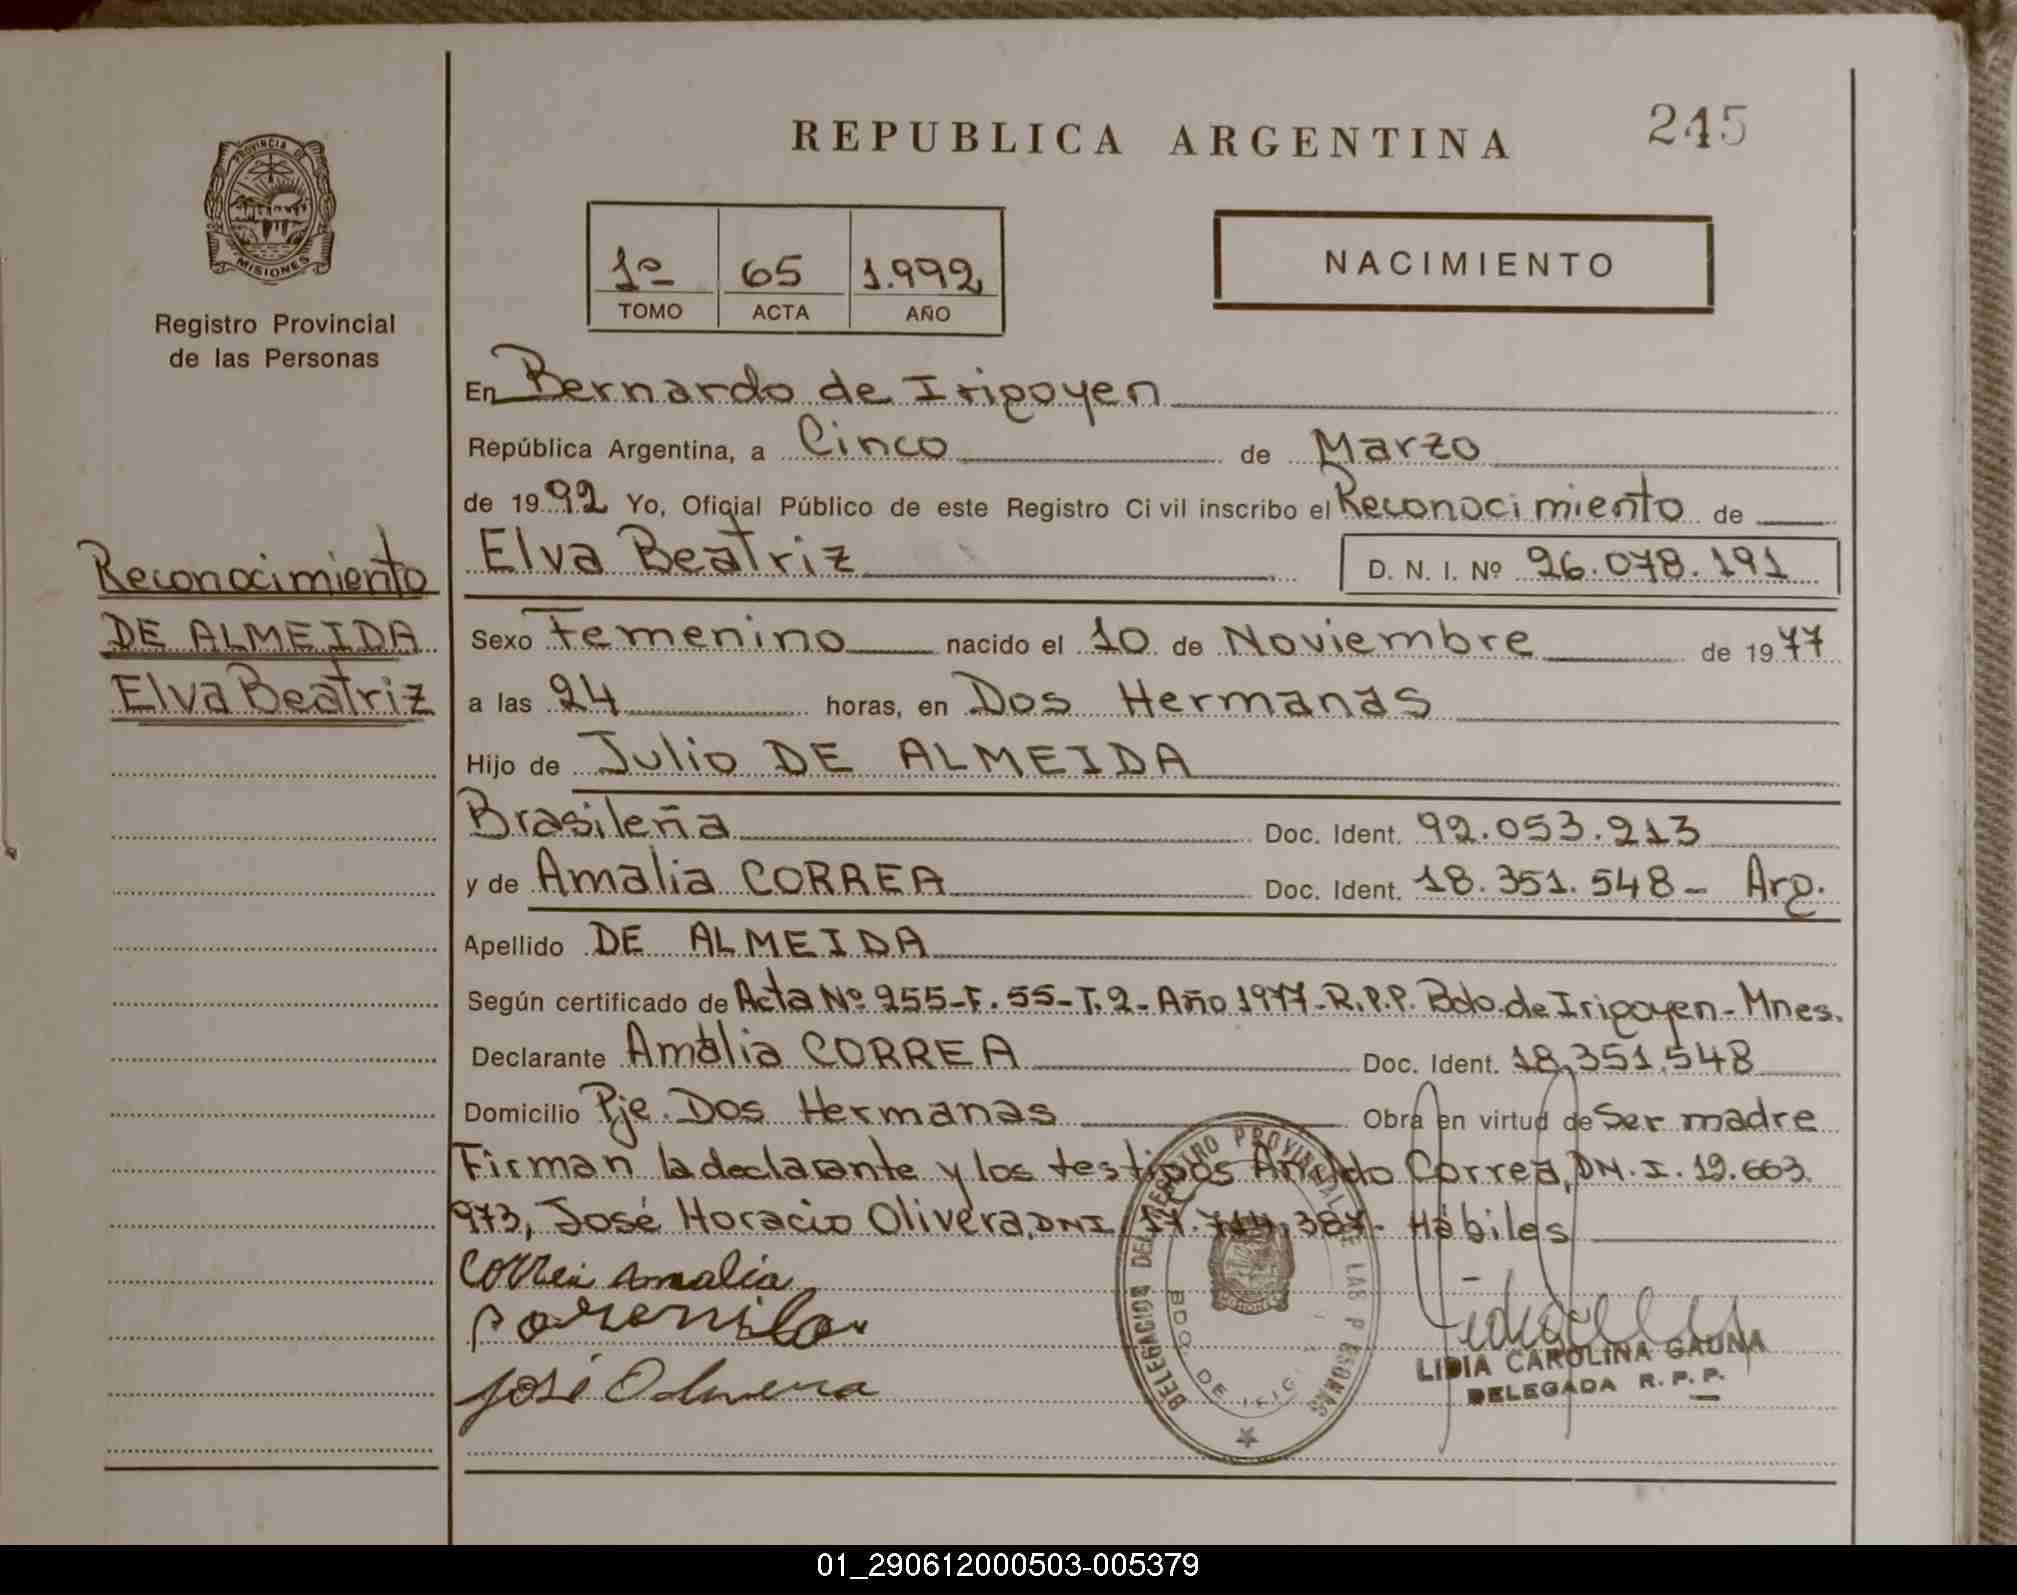 REPUBLICA ARGENTINA
245
PROVINCIA DE
MISIONES
Registro Provincial
de las Personas
1º 65 1.992
TOMO ACTA AÑO
NACIMIENTO
En Bernardo de Irigoyen
República Argentina, a Cinco de Marzo
de 1992 Yo, Oficial Público de este Registro Civil inscribo el Reconocimiento de
Elva Beatriz D. N. I. Nº 26.078.191
Reconocimiento
DE ALMEIDA
Elva Beatriz
Sexo Femenino nacido el 10 de Noviembre de 1977
a las 24 horas, en Dos Hermanas
Hijo de Julio DE ALMEIDA
Brasileña Doc. Ident. 92.053.213
y de Amalia CORREA Doc. Ident. 18.351.548 - Arg.
Apellido DE ALMEIDA
Según certificado de Acta Nº 255-F.55-T.2-Año 1977-R.P.P. Bdo. de Irigoyen-Mnes.
Declarante Amalia CORREA Doc. Ident. 18.351.548
Domicilio Pje. Dos Hermanas Obra en virtud de Ser madre
Firman la declarante y los testigos Correa, DN.I. 19.663.
973, José Horacio Olivera, DNI 387- Hábiles
Correa Amalia
José Olivera
LIDIA CAROLINA GAUNA
DELEGADA R. P. P.
01_290612000503-005379